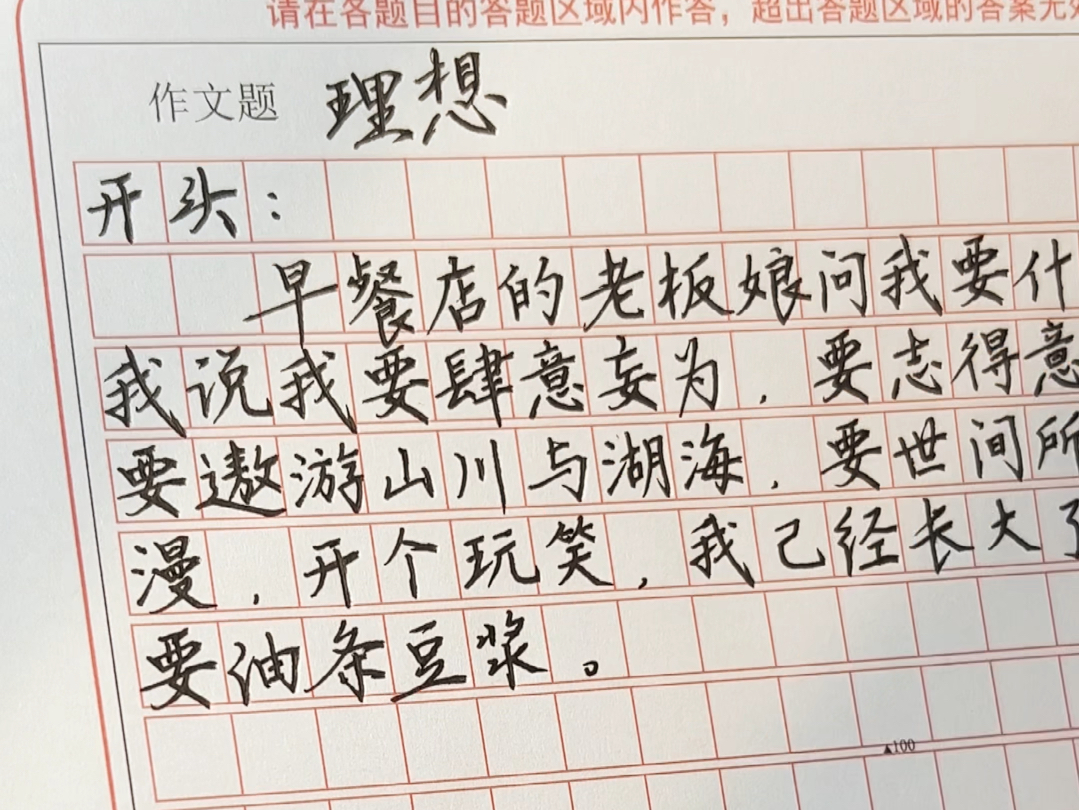 请在各题目的答题区域内作答，超出答题区域的答案无效
作文题 理想
开头：
早餐店的老板娘问我要什
我说我要肆意妄为，要志得意
要遨游山川与湖海，要世间所
漫，开个玩笑，我已经长大了
要油条豆浆。
▲100